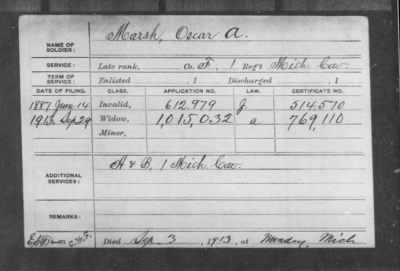 Marsh, Oscar A.
NAME OF SOLDIER:
SERVICE: Late rank, Co. F, 1 Reg't Mich Cav.
TERM OF SERVICE: Enlisted , 1 Discharged , 1
DATE OF FILING. CLASS. APPLICATION NO. LAW. CERTIFICATE NO.
1887 Jany 14 Invalid, 612,979 J. 514,570
1913 Sep 29 Widow, 1,015,032 a 769,110
Minor,
H & B, 1 Mich Cav.
ADDITIONAL SERVICES:
REMARKS:
Died Sep. 3, 1913, at Mich